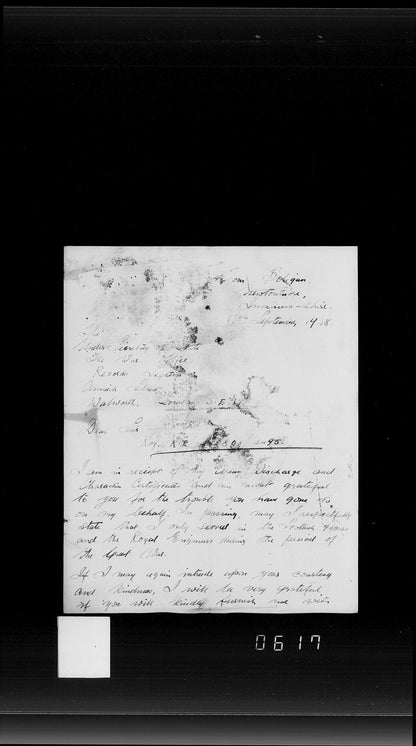 Newtonmore,
Inverness-shire.
September, 19
The
Under Secretary of State
The War Office,
Records
Arnside Street
Walworth, London S.E.
Dear Sir
I am in receipt of my Army Discharge and
Character Certificate and am most grateful
to you for the trouble you have gone to
on my behalf. In passing, may I respectfully
state that I only served in the Scottish Horse
and the Royal Engineers during the period of
the Great War.
If I may again intrude upon your courtesy
and kindness, I will be very grateful
if you will kindly furnish me with
0617